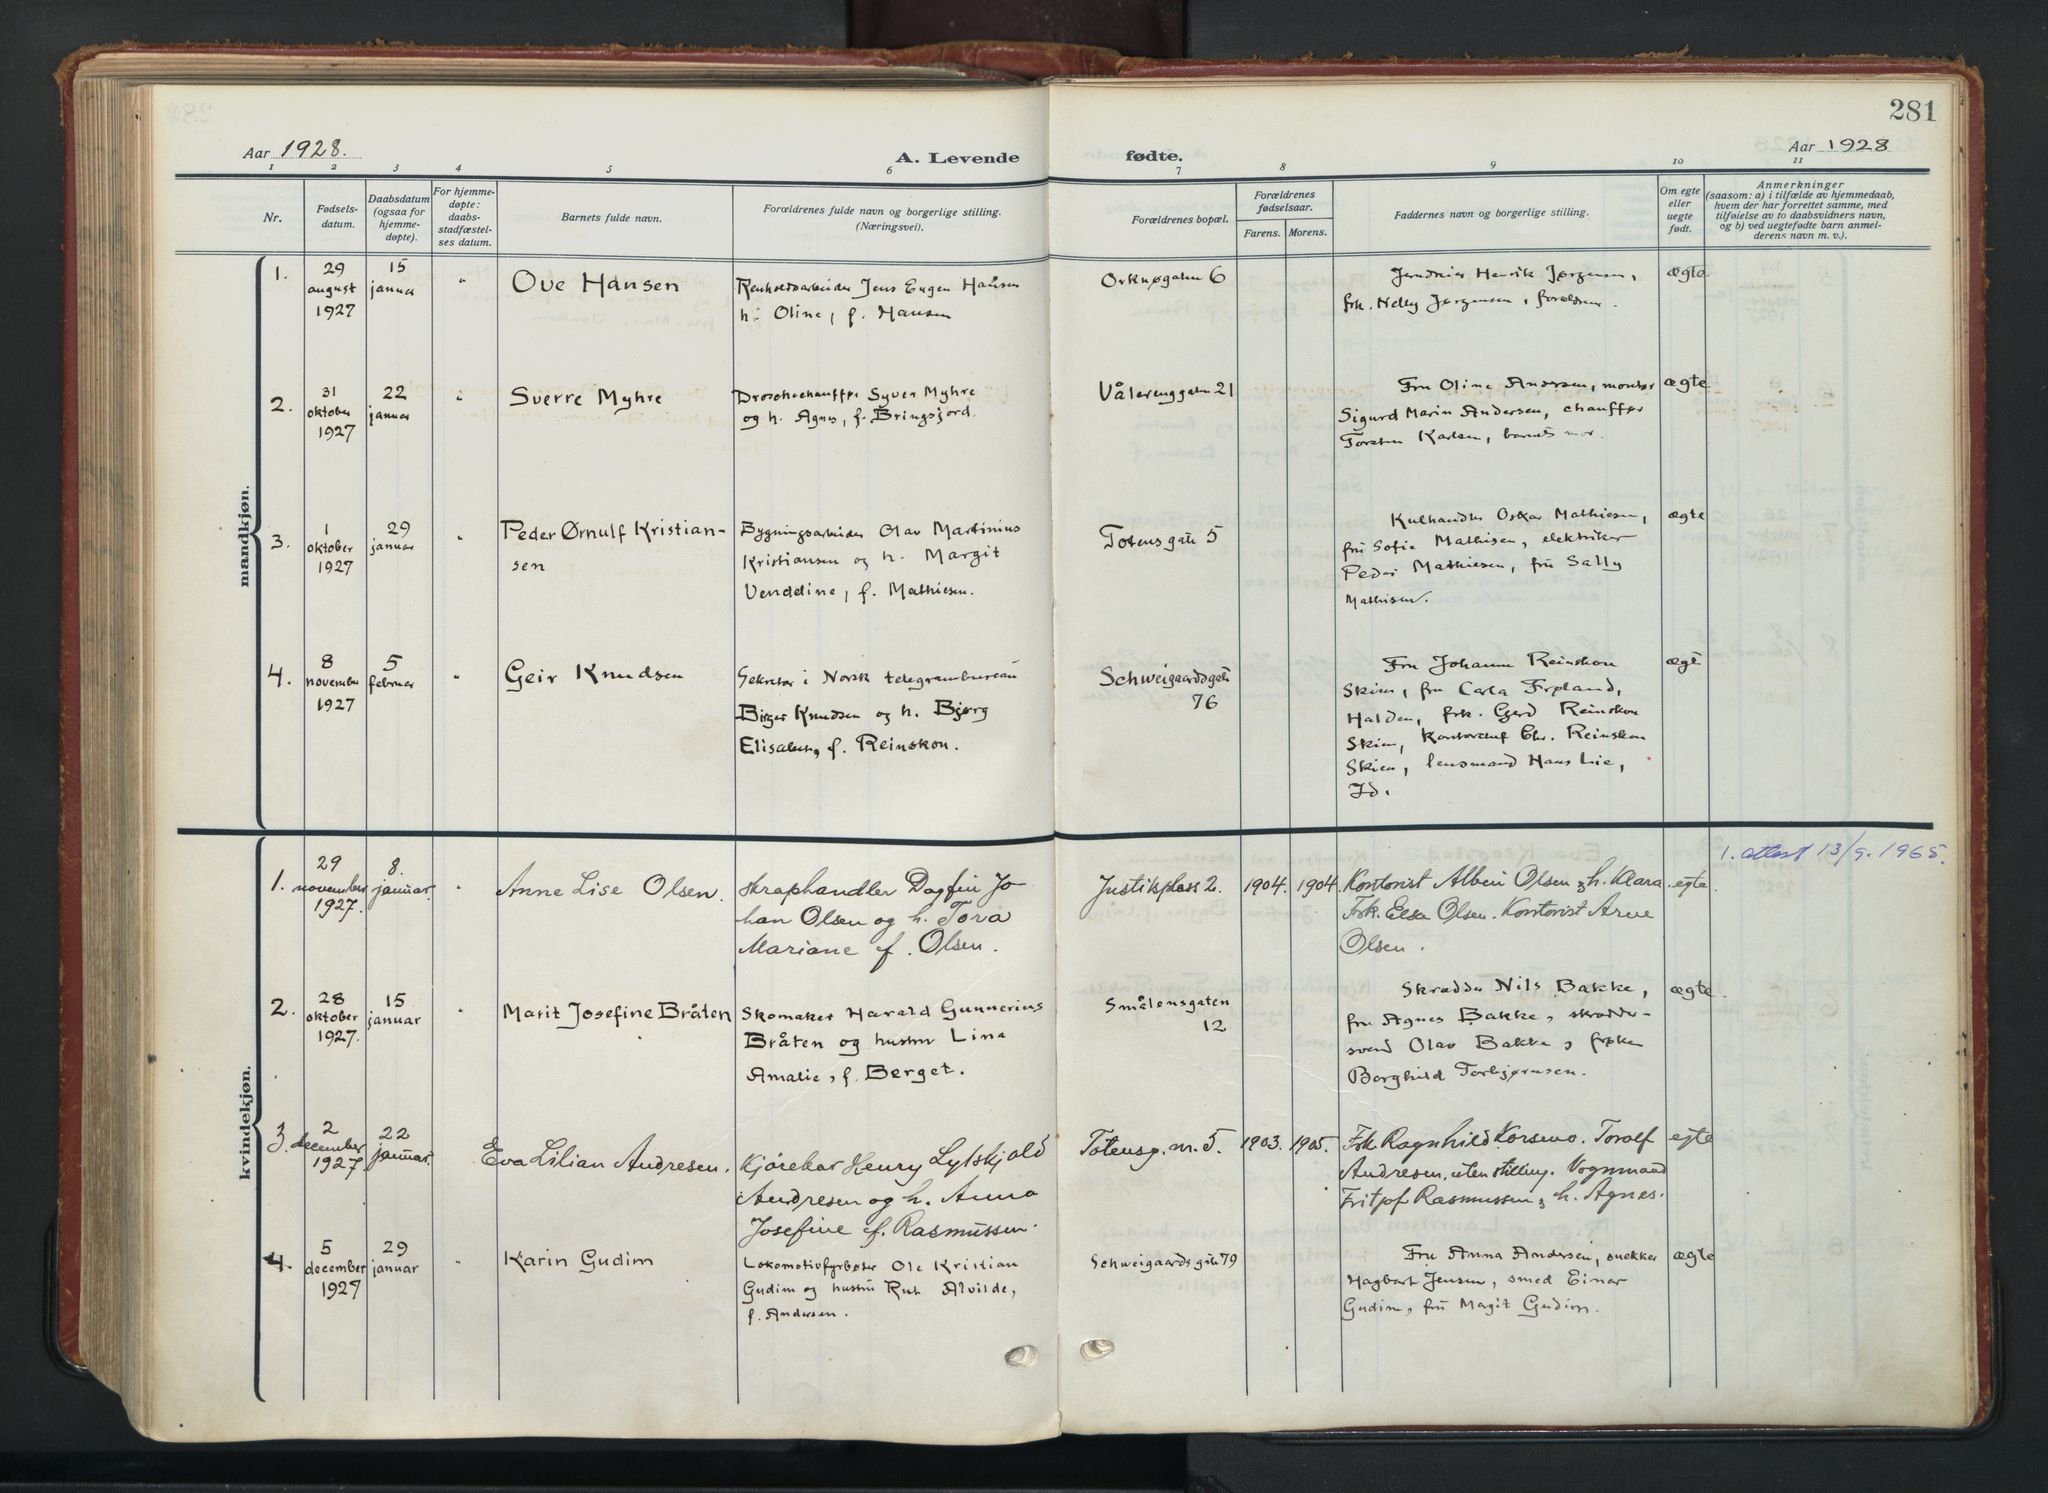 281
Aar 1928.
A. Levende fødte.
Aar 1928
1 2 3 4 5 6 7 8 9 10 11
Nr.
Fødsels-
datum.
Daabsdatum
(ogsaa for
hjemme-
døpte).
For hjemme-
døpte:
daabs-
stadfæstel-
ses datum.
Barnets fulde navn.
Forældrenes fulde navn og borgerlige stilling.
(Næringsvei).
Forældrenes bopæl.
Forældrenes
fødselsaar.
Farens. Morens.
Faddernes navn og borgerlige stilling.
Om egte
eller
uegte
født.
Anmerkninger
(saasom: a) i tilfælde av hjemmedaab,
hvem der har forrettet samme, med
tilføielse av to daabsvidners navn,
og b) ved uegtefødte barn anmel-
derens navn m. v.).
mandkjøn.
1.
29
august
1927
15
januar
"
Ove Hansen
Renholdsarbeider Jens Eugen Hansen
h. Oline, f. Hansen
Orknøgaten 6
Henrik Jørgensen,
frk. Nelly Jørgensen, foreldrene.
ægte
2.
31
oktober
1927
22
januar
"
Sverre Myhre
Droschechauffør Syver Myhre
og h. Agnes, f. Bringsjord.
Vålerenggaten 21
Fru Oline Andersen, montør
Sigurd Marin Andersen, chauffør
Torsten Karlsen, barnets mor.
ægte
3.
1
oktober
1927
29
januar
"
Peder Ørnulf Kristian-
sen
Bygningsarbeider Olav Martinius
Kristiansen og h. Margit
Venddine, f. Mathiesen.
Totensgate 5
Kulhandler Oskar Mathiesen,
fru Sofie Mathisen, elektriker
Peder Mathiesen, fru Sally
Mathisen.
ægte
4.
8
november
1927
5
februar
"
Geir Knudsen
Sekretær i Norsk telegrambureau
Birger Knudsen og h. Bjørg
Elisabet, f. Reinskou.
Schweigaardsgate
76
Fru Johanne Reinskou
Skien, fru Carla Frøland,
Halden, frk. Gjerd Reinskou
Skien, Kontorchef Chr. Reinskou
Skien, lensmand Hans Lie,
Id.
ægte
kvindekjøn.
1.
29
november
1927.
8.
januar.
"
Anne Lise Olsen.
Skraphandler Dagfin Jo-
han Olsen og h. Tora
Mariane f. Olsen.
Justisplass 2.
1904.
1904.
Kontorist Albin Olsen, h. Klara.
Frk. Elsa Olsen. Kontorist Arne
Olsen.
egte
1. attest 13/9. 1965.
2.
28
oktober
1927.
15
januar
"
Marit Josefine Bråten
Skomaker Harald Gunnerius
Bråten og hustru Lina
Amalie, f. Berget.
Smålensgaten
12
Skrædder Nils Bakke,
fru Agnes Bakke, skrædder-
svend Olav Bakke, frøken
Borghild Torbjørnsen.
ægte
3.
2
december
1927.
22
januar.
Eva Lilian Andresen.
Kjørekar Henry Lytskjold
Andresen og h. Anna
Josefine f. Rasmussen.
Totensg. nr. 5.
1903.
1905.
Frk Ragnhild Korsmo. Toralf
Andresen, uten stilling. Vognmand
Fritjof Rasmussen, h. Agnes.
egte
4.
5
december
1927
29
januar
"
Karin Gudim
Lokomotivfyrbøter Ole Kristian
Gudim og hustru Rut Alvilde,
f. Andersen.
Schweigaardsgate 79
Fru Anna Andersen, snekker
Hagbart Jensen, smed Einar
Gudim, fru Margit Gudim.
ægte